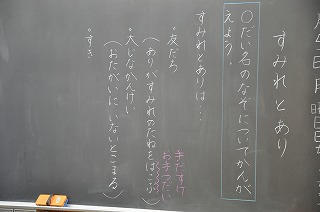 月 日 曜日
すみれとあり
○だい名のなぞについてかんが
えよう。
すみれとありは…
・友だち
(ありがすみれのたねをはこぶ)
手だすけ
お手つだい
・大じなかんけい
(おたがいにいないとこまる)
・すき